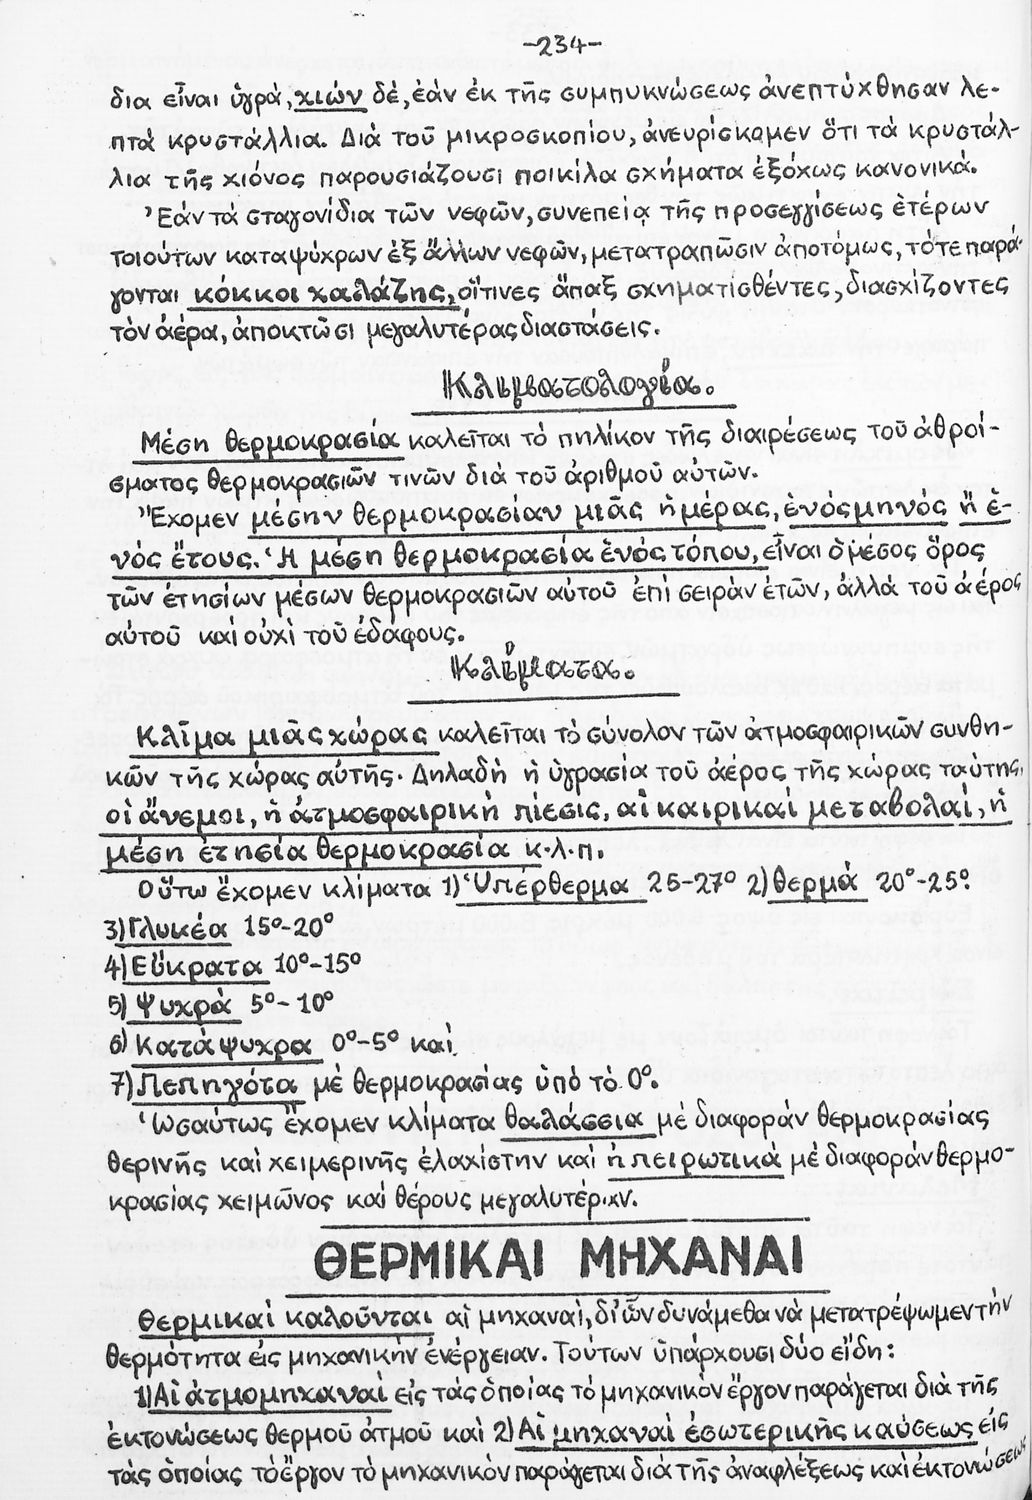 -234-
δια εἶναι ὑγρά, χιών δέ, ἐάν ἐκ τῆς συμπυκνώσεως ἀνεπτύχθησαν λε-
πτά κρυστάλλια. Διά τοῦ μικροσκοπίου, ἀνευρίσκομεν ὅτι τά κρυστάλ-
λια τῆς χιόνος παρουσιάζουσι ποικίλα σχήματα ἐξόχως κανονικά.
Ἐάν τά σταγονίδια τῶν νεφῶν, συνεπείᾳ τῆς προσεγγίσεως ἑτέρων
τοιούτων καταψύχρων ἐξ ἄλλων νεφῶν, μετατραπῶσιν ἀποτόμως, τότε παρά-
γονται κόκκοι χαλάζης, οἵτινες ἅπαξ σχηματισθέντες, διασχίζοντες
τόν ἀέρα, ἀποκτῶσι μεγαλυτέρας διαστάσεις.
Κλιματολογία.
Μέση θερμοκρασία καλεῖται τό πηλίκον τῆς διαιρέσεως τοῦ ἀθροί-
σματος θερμοκρασιῶν τινῶν διά τοῦ ἀριθμοῦ αὐτῶν.
Ἔχομεν μέσην θερμοκρασίαν μιᾶς ἡμέρας, ἑνός μηνός ἤ ἑ-
νός ἔτους. Ἡ μέση θερμοκρασία ἑνός τόπου, εἶναι ὁ μέσος ὅρος
τῶν ἐτησίων μέσων θερμοκρασιῶν αὐτοῦ ἐπί σειράν ἐτῶν, ἀλλά τοῦ ἀέρος
αὐτοῦ καί οὐχί τοῦ ἐδάφους.
Κλίματα.
Κλῖμα μιᾶς χώρας καλεῖται τό σύνολον τῶν ἀτμοσφαιρικῶν συνθη-
κῶν τῆς χώρας αὐτῆς. Δηλαδή ἡ ὑγρασία τοῦ ἀέρος τῆς χώρας ταύτης,
οἱ ἄνεμοι, ἡ ἀτμοσφαιρική πίεσις, αἱ καιρικαί μεταβολαί, ἡ
μέση ἐτησία θερμοκρασία κ.λ.π.
Οὕτω ἔχομεν κλίματα 1) Ὑπέρθερμα 25-27° 2) θερμά 20°-25°.
3) Γλυκέα 15°-20°
4) Εὔκρατα 10°-15°
5) Ψυχρά 5°-10°
6) Κατάψυχρα 0°-5° καί
7) Πεπηγότα μέ θερμοκρασίας ὑπό τό 0°.
Ὡσαύτως ἔχομεν κλίματα θαλάσσια μέ διαφοράν θερμοκρασίας
θερινῆς καί χειμερινῆς ἐλαχίστην καί ἠπειρωτικά μέ διαφοράν θερμο-
κρασίας χειμῶνος καί θέρους μεγαλυτέραν.
ΘΕΡΜΙΚΑΙ ΜΗΧΑΝΑΙ
Θερμικαί καλοῦνται αἱ μηχαναί, δι' ὧν δυνάμεθα νά μετατρέψωμεν τήν
θερμότητα εἰς μηχανικήν ἐνέργειαν. Τούτων ὑπάρχουσι δύο εἴδη:
1) Αἱ ἀτμομηχαναί εἰς τάς ὁποίας τό μηχανικόν ἔργον παράγεται διά τῆς
ἐκτονώσεως θερμοῦ ἀτμοῦ καί 2) Αἱ μηχαναί ἐσωτερικῆς καύσεως εἰς
τάς ὁποίας τό ἔργον τό μηχανικόν παράγεται διά τῆς ἀναφλέξεως καί ἐκτονώσεως